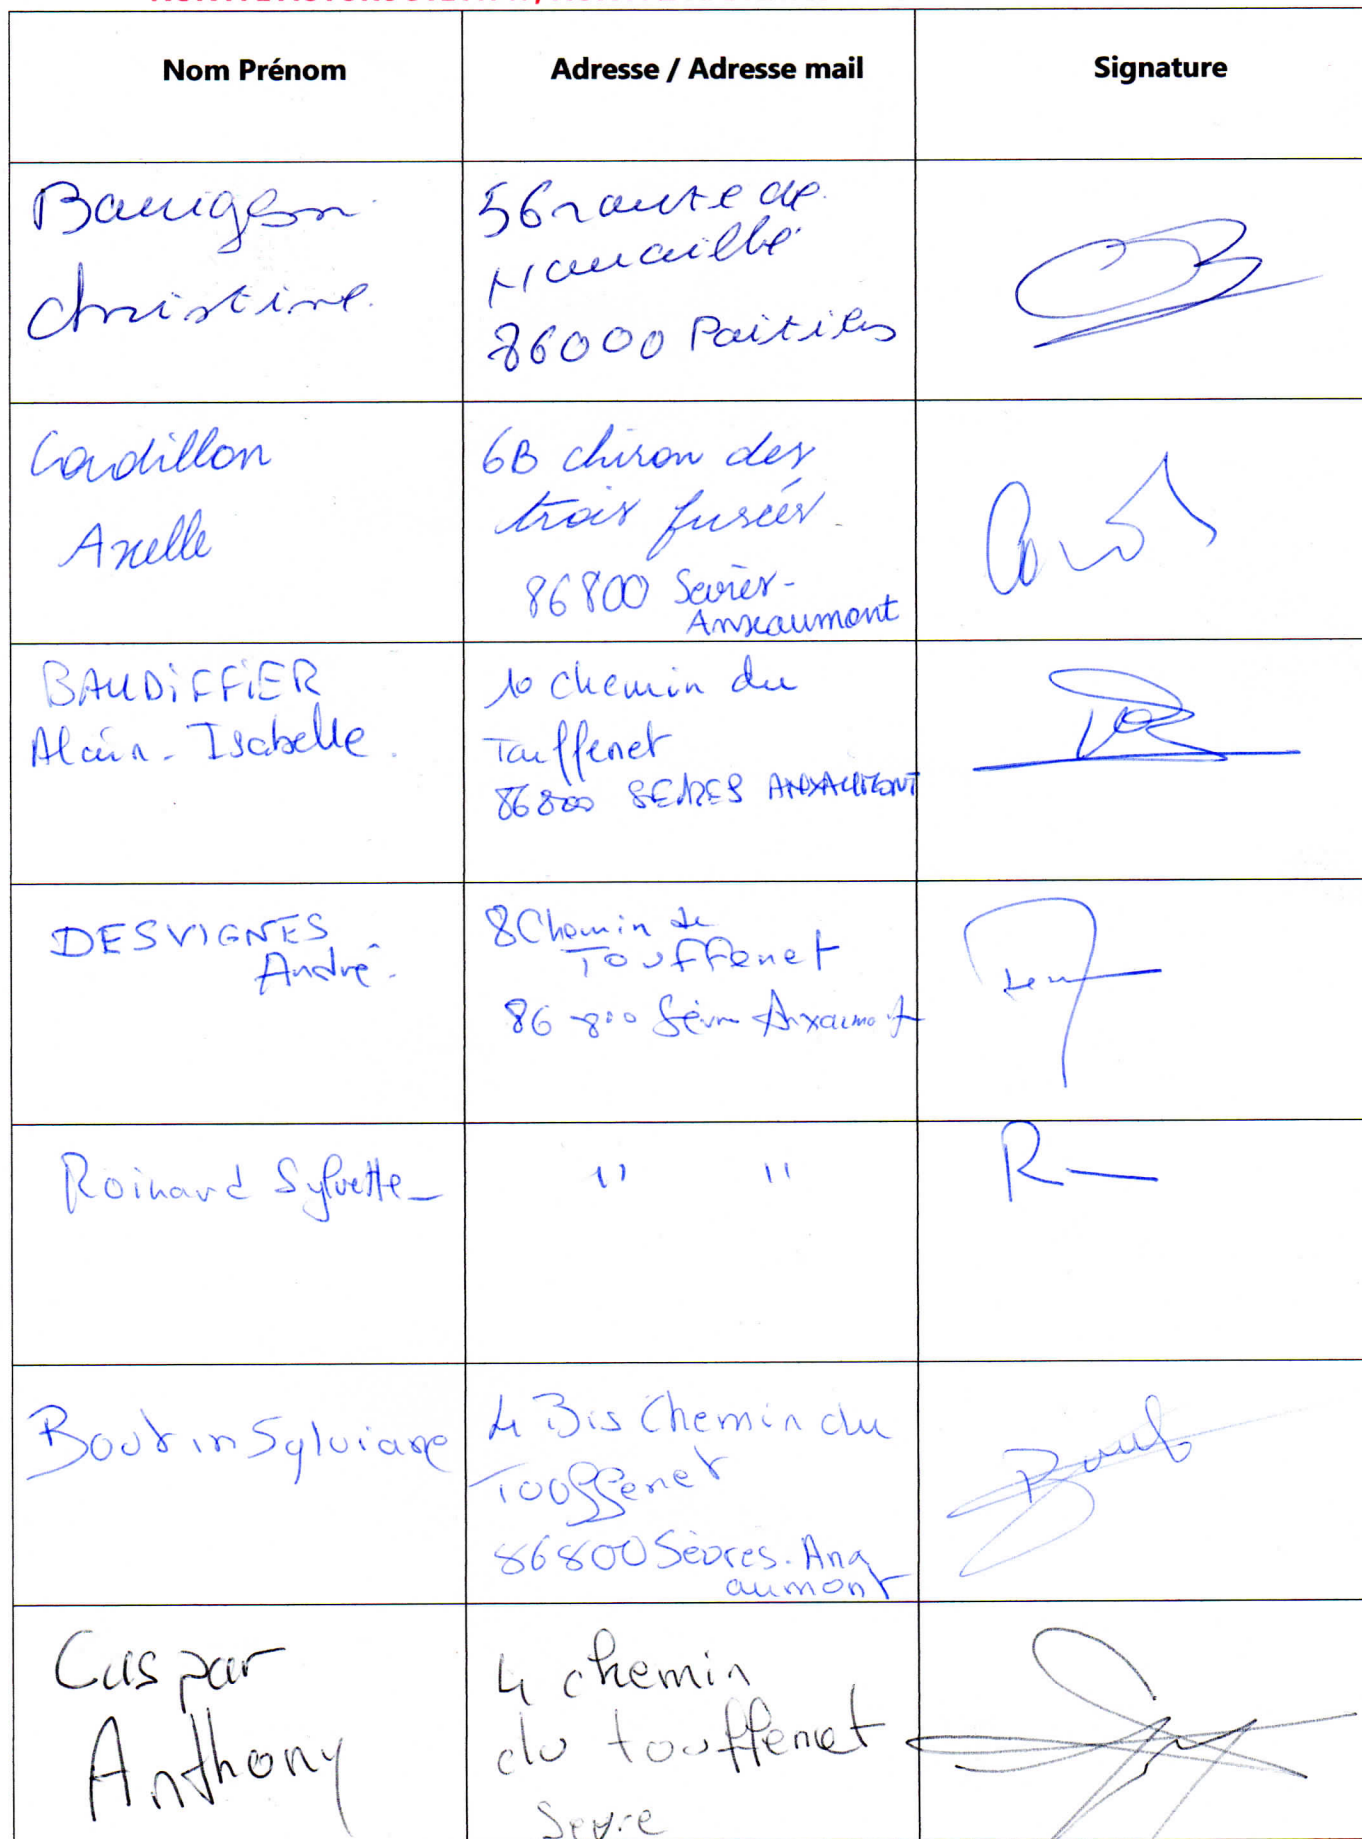 Nom Prénom
Adresse / Adresse mail
Signature
Christine
56 route de
86000 Poitiers
Coudillon
Axelle
6B chiron des
trois fusées
86800 Sèvres-
Anxaumont
BAUDIFFIER
Alain - Isabelle
10 chemin du
Touffenet
86800 SEVRES ANXAUMONT
DESVIGNES
André
8 Chemin de
Touffenet
86 800 Sèvres Anxaumont
Roinard Sylvette
" "
R
Boutin Sylviane
4 Bis Chemin du
Touffenet
86800 Sèvres. Anx
aumont
Caspar
Anthony
4 chemin
du touffenet
Sevre